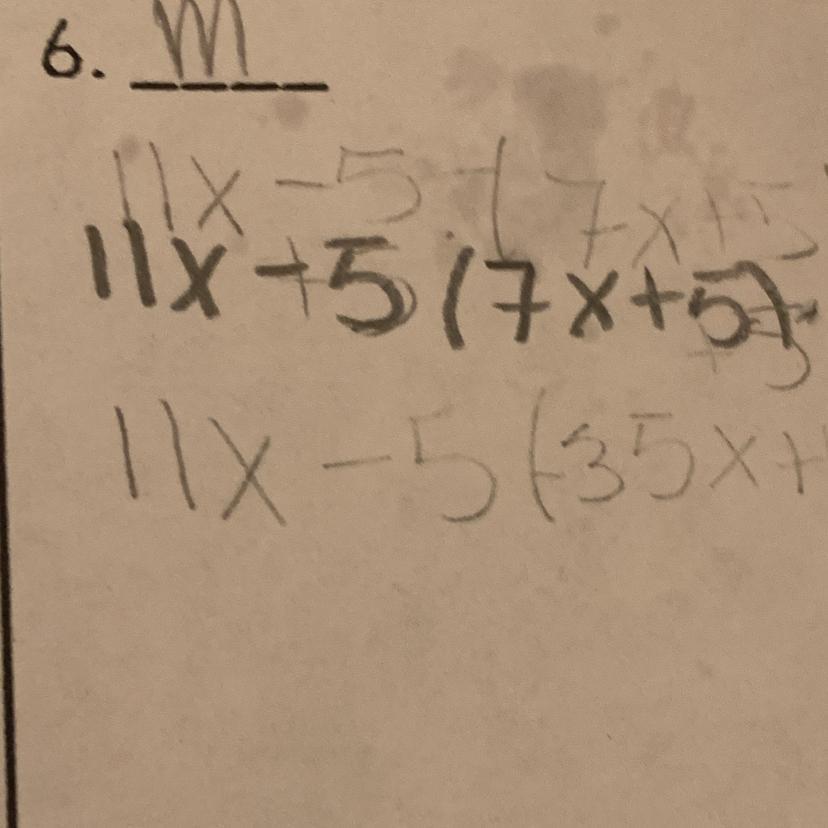 6. m
11x - 5 - (7x + 5
11x - 5 (7x + 5)
11x - 5 (-35x +